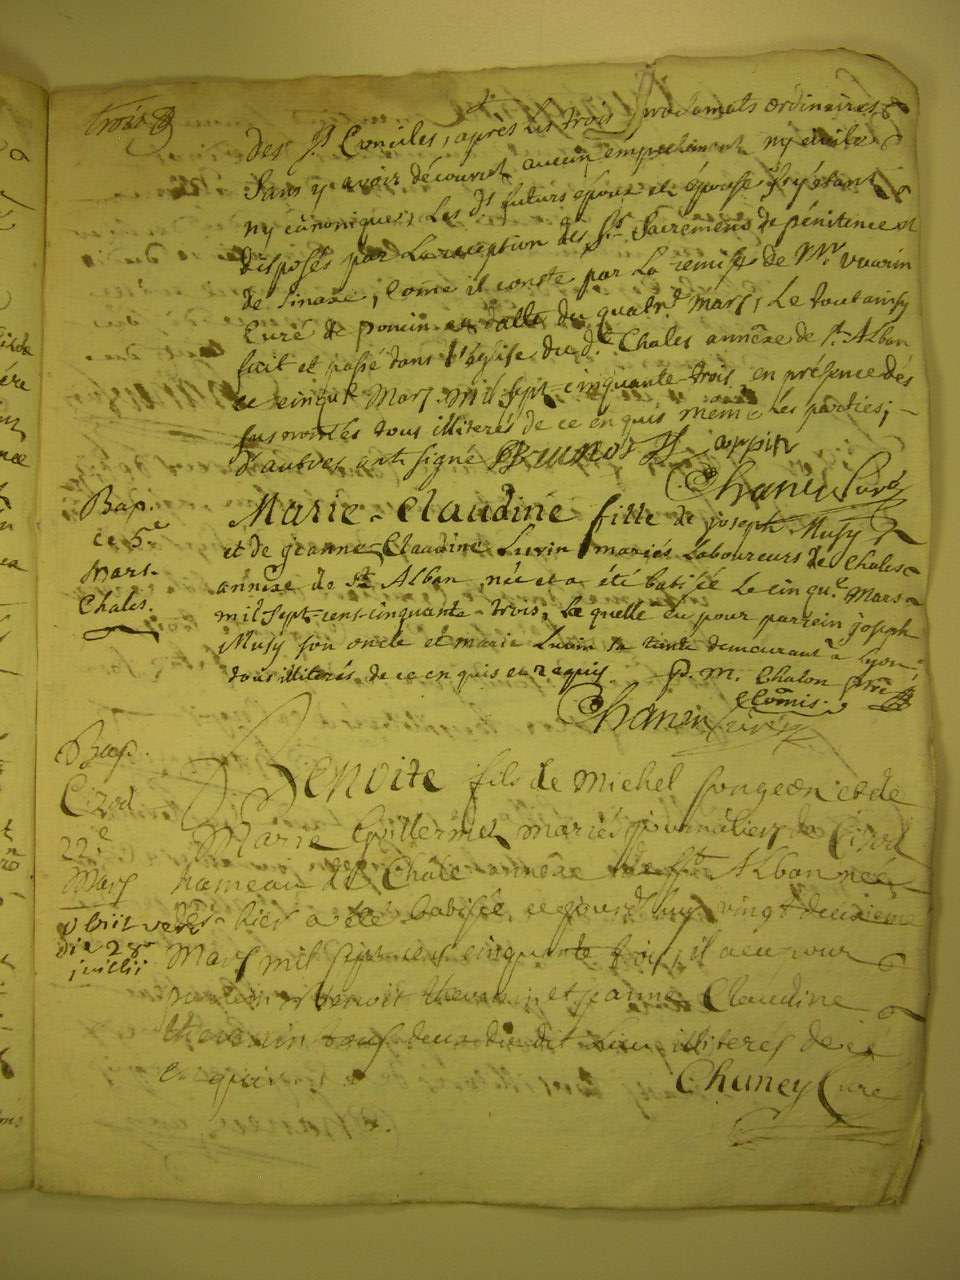 trois
des Sts Conciles, apres les trois proclamats ordinaires
sans y avoir découvert aucun empechement ny civile
ny canoniques, Les ds futurs époux et épouse s'y étant
disposés par La reception des Sts Sacremens de pénitence et
de , come il conste par La remise de Mr vuarin
Curé de poncin en datte du quatre Mars, Le tout ainsy
fait et passé dans l'église du d. Chales annéxe de St Alban
ce cinqe Mars mil sept cinquante trois en présence des
sus només tous illiterés de ce enquis même Les parties;
d'autres ont signé Brunot appin
Chaney Curé
Bap.
ce 5e
Mars.
Chales.
Marie-Claudine fille de joseph Musy
et de jeanne Claudine Luvin mariés Laboureurs de Chales
annéxe de St Alban née et a été batisée Le cinqe Mars
mil-sept-cent-cinquante-trois, La quelle eu pour parrein joseph
Musy son oncle et marie Luvin sa tante demeurant a Lyon
tous illiterés de ce enquis et requis. P. m. Chalon ptre
Comis.
Chaney Curé
Bap.
Cizod
22e
Mars
obiit vero
die 28
jullii
Benoite fils de Michel Songeon et de
Marie Guillermet mariés journaliers de Cizod
hameau de Chale annéxe de St Alban née
hier a été batisée cejourd'huy vingt deuxieme
Mars mil sept cens cinquante trois, il a eu pour
parrein benoit thevenin et jeanne Claudine
thevenin tous deux du dit Lieu illiterés de ce
enquis
Chaney Curé